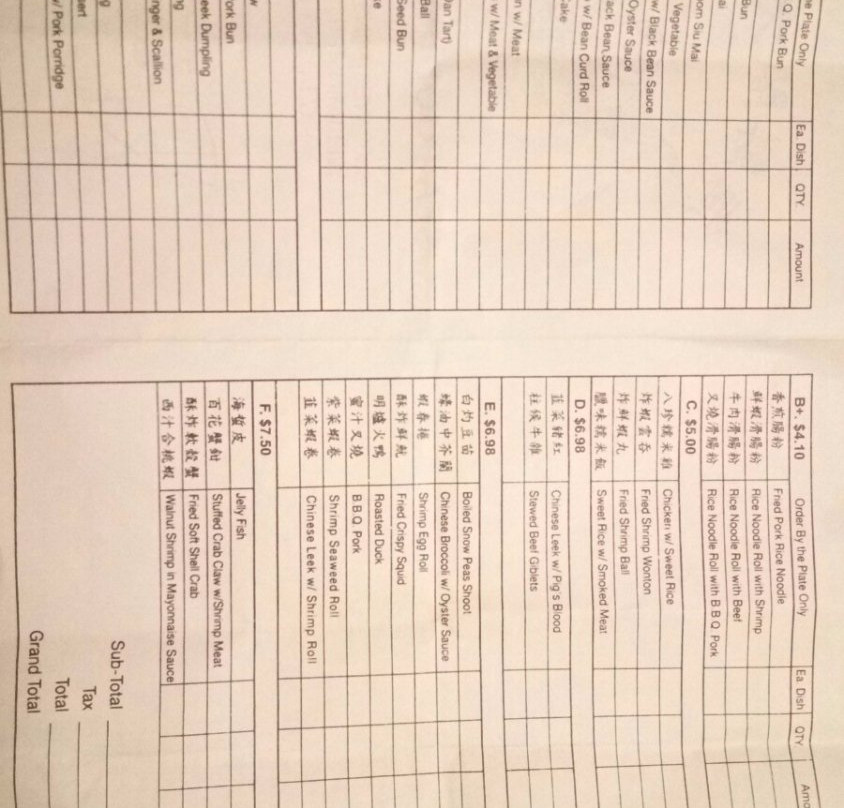 e Plate Only Ea Dish QTY. Amount
Q. Pork Bun
Bun
ai
om Siu Mai
Vegetable
w/ Black Bean Sauce
Oyster Sauce
ack Bean Sauce
w/ Bean Curd Roll
ake
n w/ Meat
w/ Meat & Vegetable
an Tart)
Ball
Seed Bun
e
w
ork Bun
eek Dumpling
ng
nger & Scallion
g
ert
/ Pork Porridge
B+. $4.10 Order By the Plate Only Ea Dish QTY Amo
香煎腸粉 Fried Pork Rice Noodle
鮮蝦滑腸粉 Rice Noodle Roll with Shrimp
牛肉滑腸粉 Rice Noodle Roll with Beef
叉燒滑腸粉 Rice Noodle Roll with B B Q Pork
C. $5.00
八珍糯米雞 Chicken w/ Sweet Rice
炸蝦雲吞 Fried Shrimp Wonton
炸鮮蝦丸 Fried Shrimp Ball
臘味糯米飯 Sweet Rice w/ Smoked Meat
D. $6.98
韮菜豬紅 Chinese Leek w/ Pig's Blood
柱侯牛雜 Stewed Beef Giblets
E. $6.98
白灼豆苗 Boiled Snow Peas Shoot
蠔油中芥蘭 Chinese Broccoli w/ Oyster Sauce
蝦春捲 Shrimp Egg Roll
酥炸鮮魷 Fried Crispy Squid
明爐火鴨 Roasted Duck
蜜汁叉燒 B B Q Pork
紫菜蝦卷 Shrimp Seaweed Roll
韮菜蝦卷 Chinese Leek w/ Shrimp Roll
F. $7.50
海蜇皮 Jelly Fish
百花蟹鉗 Stuffed Crab Claw w/Shrimp Meat
酥炸軟殼蟹 Fried Soft Shell Crab
西汁合桃蝦 Walnut Shrimp in Mayonnaise Sauce
Sub-Total
Tax
Total
Grand Total